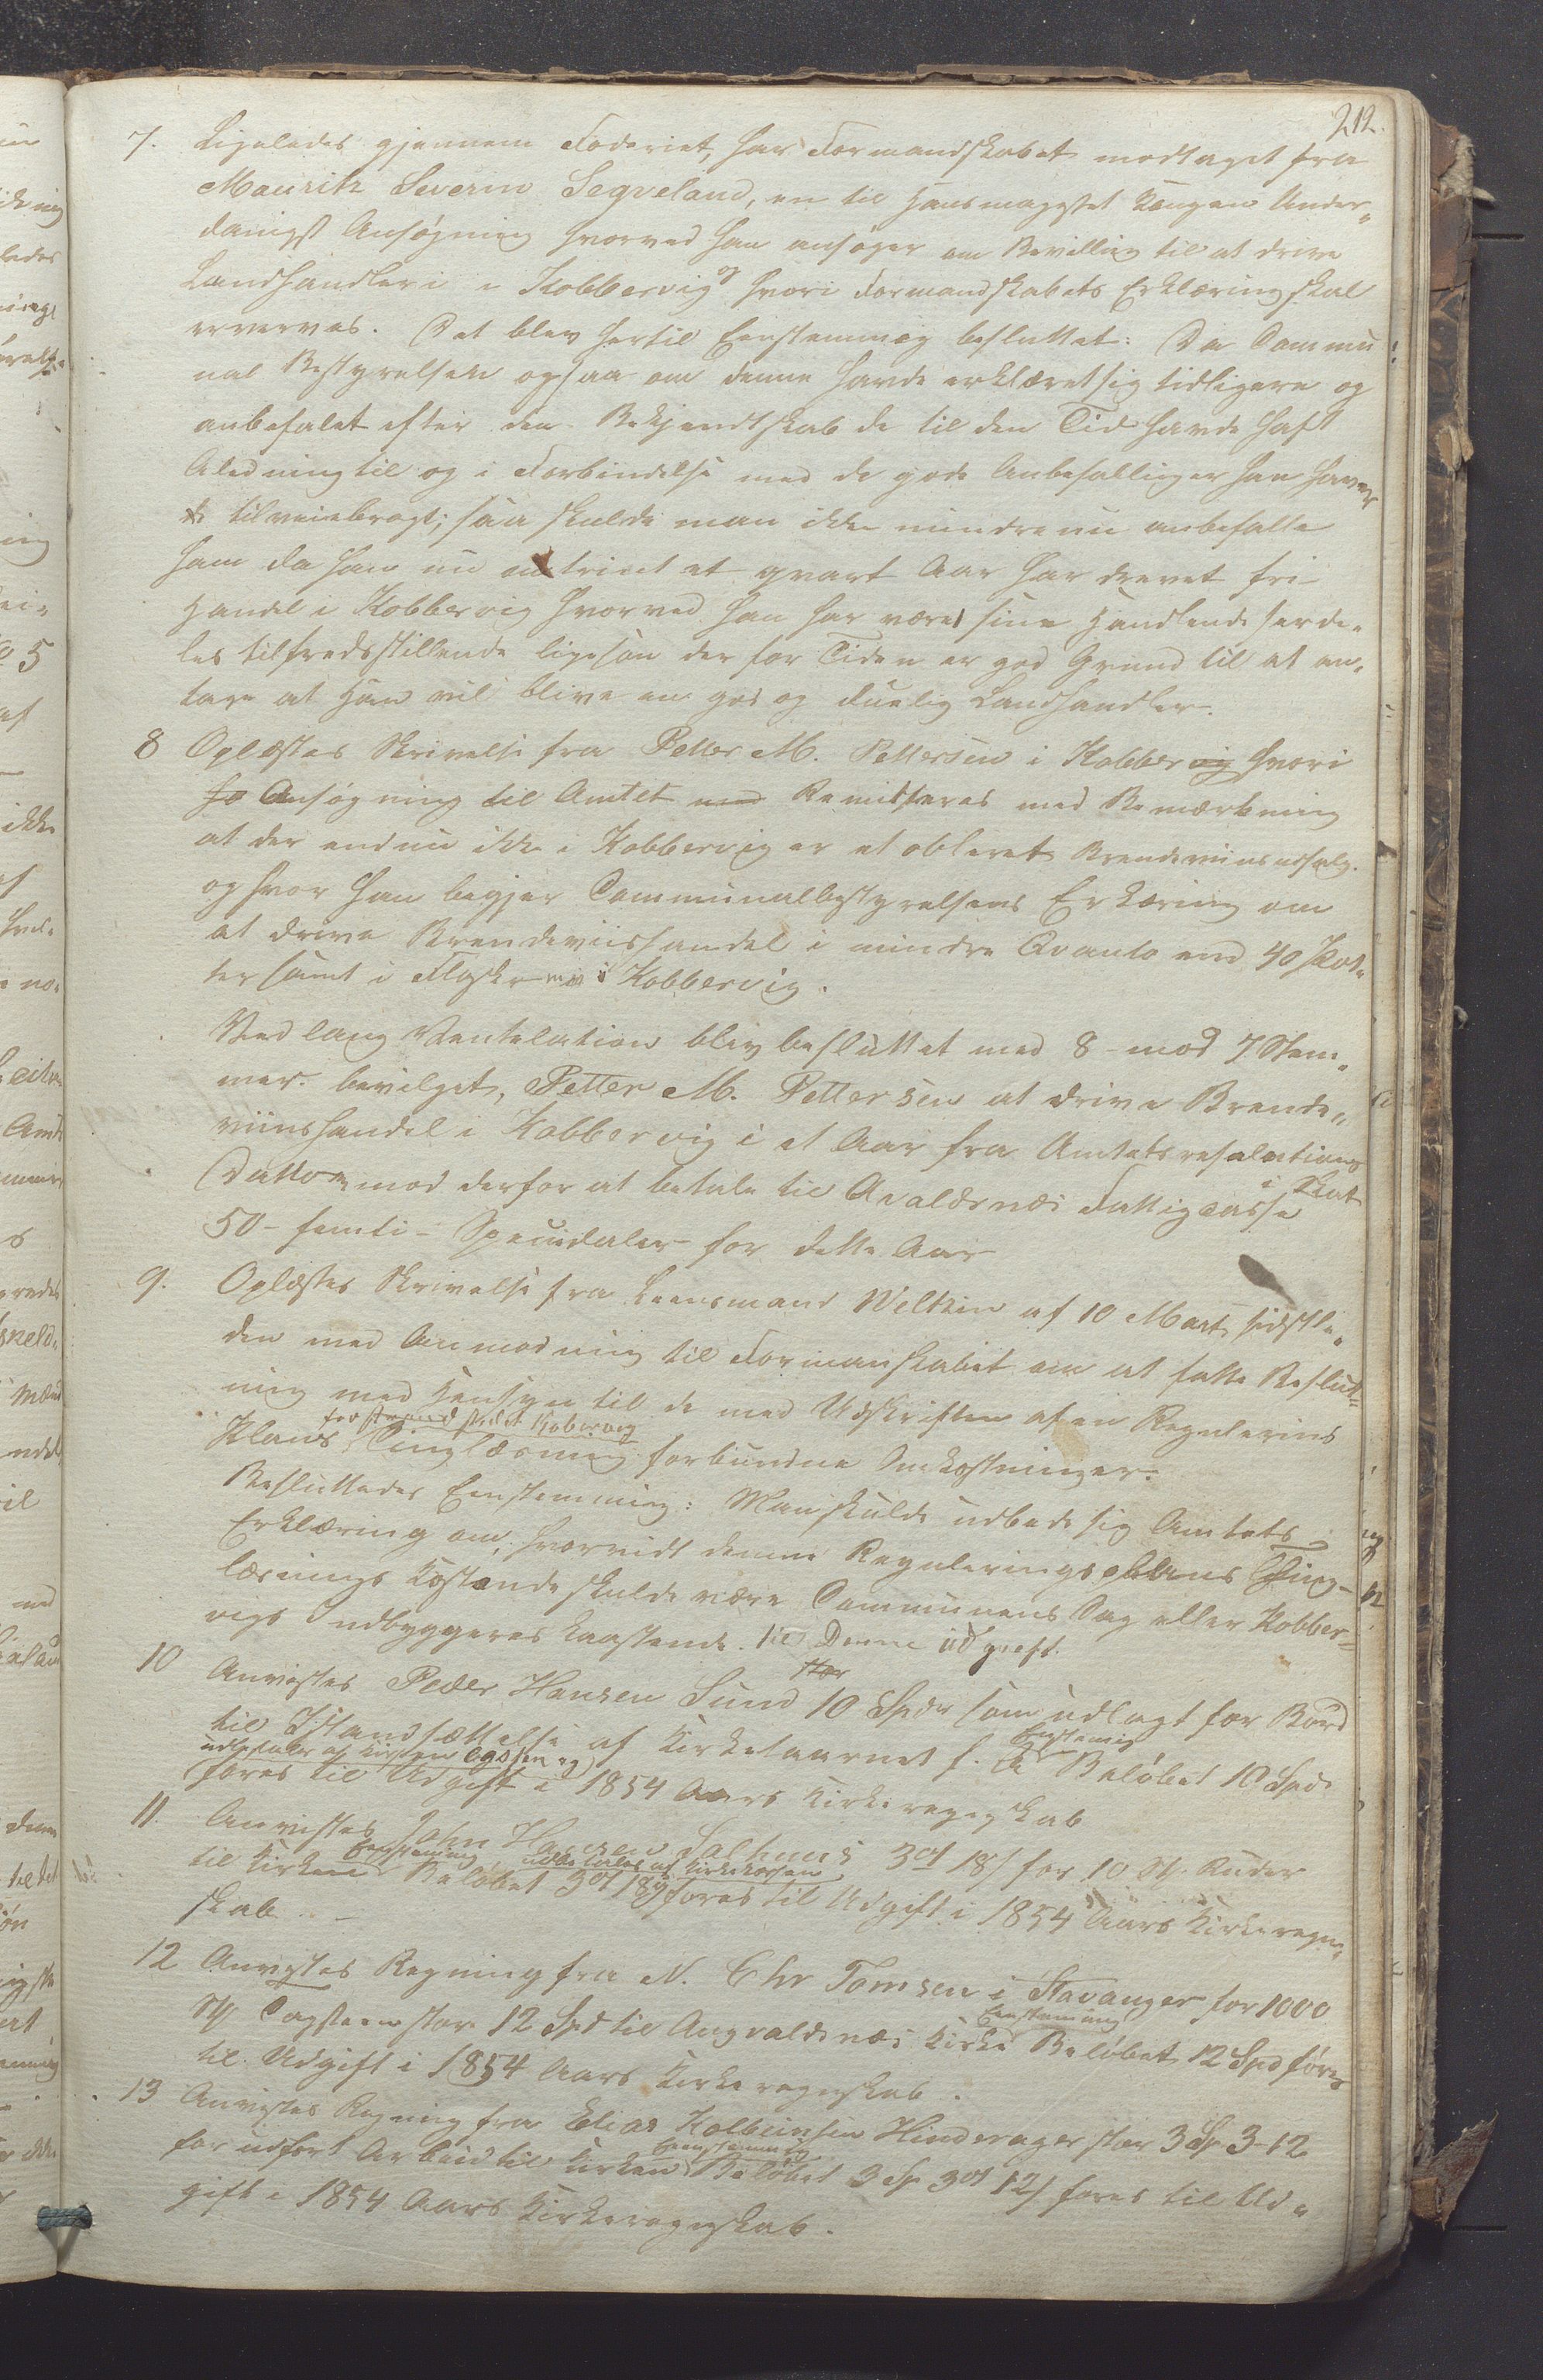 212.
7. Ligeledes gjennem Foderiet, har Formandskabet modtaget fra
Mauritz Severin Seqveland, en til Hans mayestet Kongen Under„
danigst Ansøgning hvorved han ansøger om Bevilling til at drive
Landhandleri i Kobbervig og hvori Formandskabets Erklæring skal
erverves. Det blev hertil Eenstemmig besluttet: Da Commu
nal Bestyrelsen ogsaa om denne havde erklæret sig tidligere og
anbefalet efter den Bekjendtskab de til den Tid havde haft
Aledning til og i Forbindelse med de gode Anbefallinger han haver
tilveiebragt; saa skulde man ikke mindre nu anbefalle
ham da han nu omtrint et qvart Aar har drevet fri
Handel i Kobbervig hvorved han har været sine Handlende særde„
les tilfredsstillende ligesom der for Tiden er god Grund til at an„
tage at Han vil blive en god og duelig Landhandler.
8 Oplæstes Skrivelse fra Petter M. Pettersen i Kobbervig hvori
Ansøgning til Amtet Remitteres med Bemærkning
at der endnu ikke i Kobbervig er etableret Brendeviinsudsalg.
og hvor han begjær Communalbestyrelsens Erklæring om
at drive Brendeviishandel i mindre Qvanto end 40 Pot„
ter samt i Flasker i Kobbervig.
Ved lang Ventelation blev besluttet med 8 mod 7 Stem„
mer. bevilget, Petter M. Pettersen at drive Brende„
viinshandel i Kobbervig i et Aar fra Amtets resolutions
Datto mod derfor at betale til Avaldsnæs Fattigcasse
50 - femti - Speciedaler for dette Aar
9. Oplæstes Skrivelse fra Leensmand Weltzin af 10 Marts sidstle„
den med Anmodning til Formanskabet om at fatte Beslut„
ning med Hensyn til de med Udskriften af en Regulerins
for strandstedet Kobervig
Plans Tinglæsning forbundne Omkostninger.
Besluttedes Eenstemmig: Man skulde udbede sig Amtets
Erklæring om, hvorvidt denne Reguleringsplans Ting-
læsnings Kostende skulde være Communens Sag eller Kobber„
vigs Indbyggeres Kaastende. til Denne udgieft.
10 Anvistes Peder Hansen Sund 10 Spdr som udlagt for Bord
til Istandsættelse af Kirketaarnet Eenstemig Beløbet 10 Spd
udbetales af Kirkens Casse og
føres til Udgift i 1854 Aars Kirkeregnskab
11. Anvistes John Hansen Salhuus 3 ort 18 s for 10 St. Ruder
Eenstemmig udbetales af Kirkekassen
til Kirken Beløbet 3 ort 18 s føres til Udgift i 1854 Aars Kirkeregn„
skab. —
12 Anvistes Regning fra N. Chr Tomsen i Stavanger for 1000
St Tagsteen stor 12 Spd til Augvaldsnæs Kirke Eenstemmig Beløbet 12 Spd føres
til Udgift i 1854 Aars Kirkeregnskab.
13 Anvistes Regning fra Elias Kolbeinsen Hinderager stor 3 Sp 3-12
for udført Arbeid til Kirken Eenstemmig Beløbet 3 Sp 3 ort 12 s føres til Ud„
gift i 1854 Aars Kirkeregnskab.